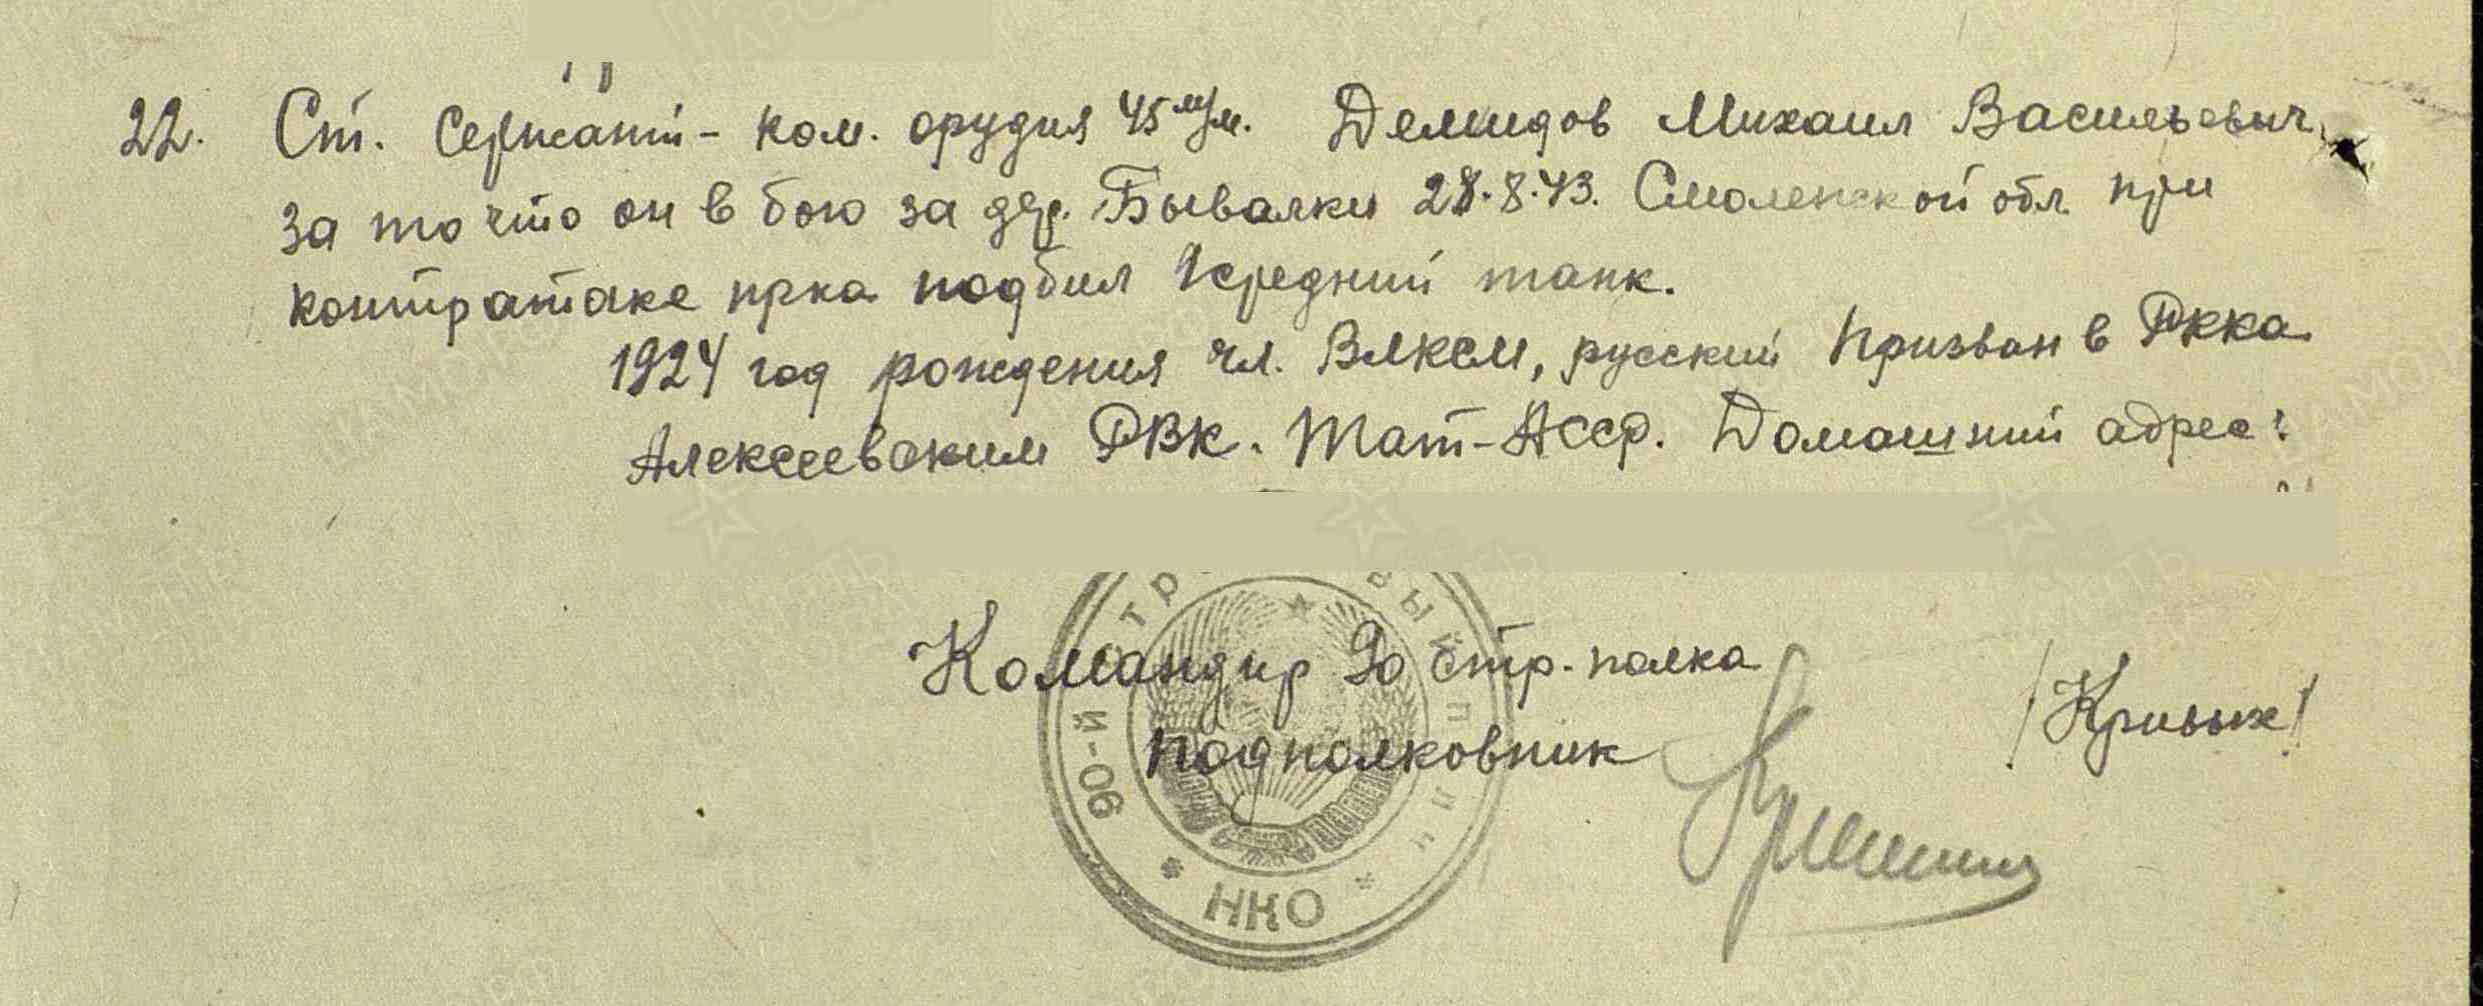 22. Ст. Сержант - ком. орудия 45 м/м. Демидов Михаил Васильевич
за то что он в бою за дер. Бывалки 28.8.43. Смоленской обл. при
контратаке пр-ка подбил 1 средний танк.
1924 год рождения чл. ВЛКСМ, русский призван в РККА
Алексеевским РВК. Тат-АССР. Домашний адрес:
Командир 90 стр. полка
подполковник /Кривых/
90-й
НКО